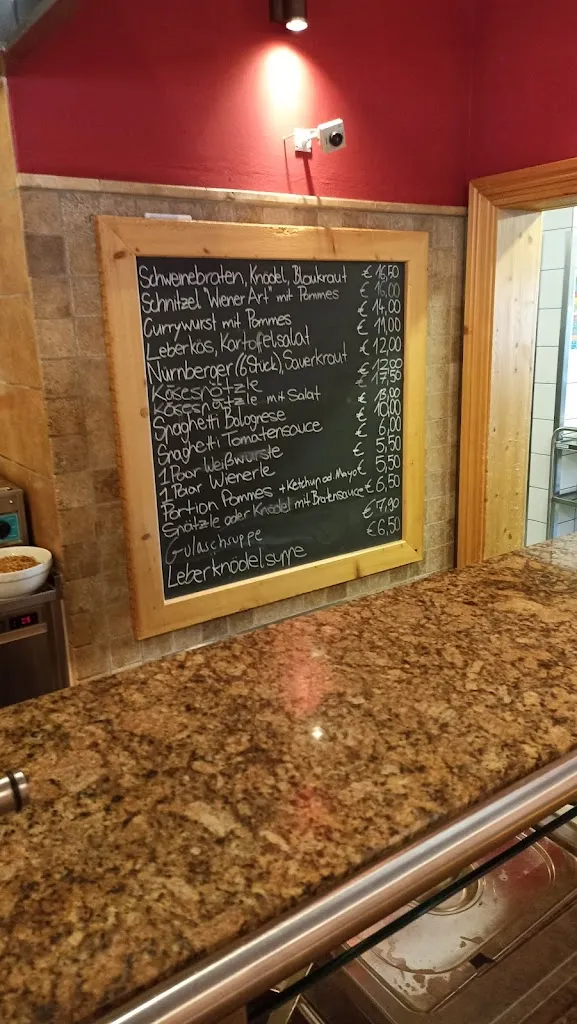 Schweinebraten, Knödel, Blaukraut € 16,50
Schnitzel "Wiener Art" mit Pommes € 16,00
Currywurst mit Pommes € 14,00
Leberkäs, Kartoffelsalat € 11,00
Nürnberger (6 Stück), Sauerkraut € 12,00
Käsespätzle € 12,00
Käsespätzle mit Salat € 17,50
Spaghetti Bolognese € 13,00
Spaghetti Tomatensauce € 10,00
1 Paar Weißwürste € 6,00
1 Paar Wienerle € 5,50
Portion Pommes + Ketchup od Mayo € 5,50
Spätzle oder Knödel mit Bratensauce € 6,50
Gulaschsuppe € 7,90
Leberknödelsuppe € 6,50